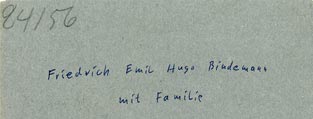 84/56
Friedrich Emil Hugo Bindemann
mit Familie